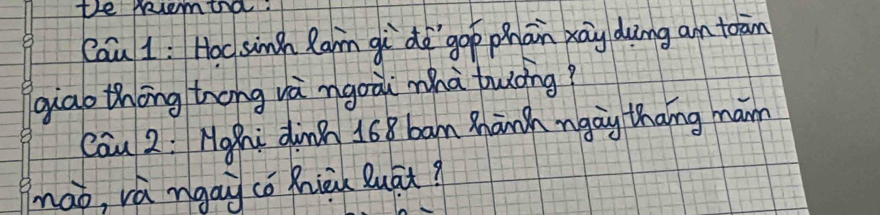 Đề kiểm tra:
Câu 1: Học sinh làm gì để góp phần xây dựng an toàn
giao thông trong và ngoài nhà trường?
Câu 2: Nghị định 168 ban hành ngày tháng năm
nào, và ngày có hiệu luật?